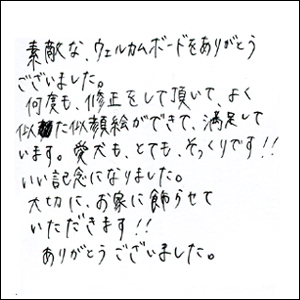 素敵な、ウェルカムボードをありがとう
ございました。
何度も、修正をして頂いて、よく
似た似顔絵ができて、満足して
います。愛犬も、とても、そっくりです!!
いい記念になりました。
大切に、お家に飾らせて
いただきます!!
ありがとうございました。